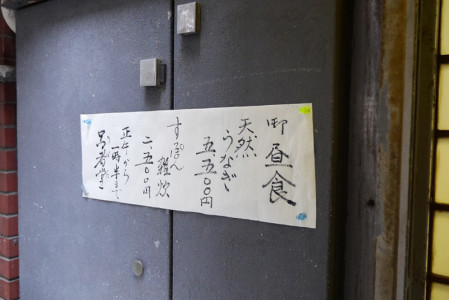 御昼食
天然
うなぎ
五、五〇〇円
すっぽん
雑炊
二、五〇〇円
正午から
一時半まで